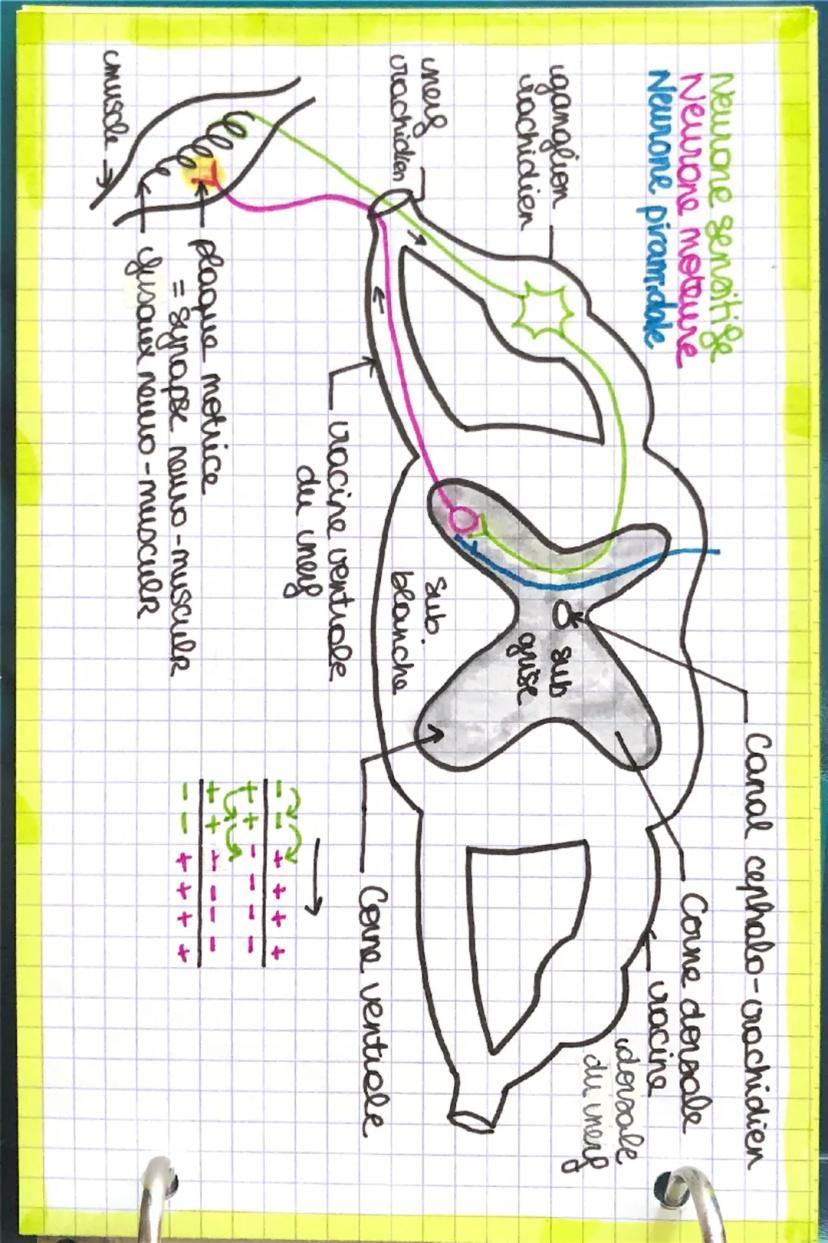 Neurone sensitife
Neurone moteure
Neurone piramidale
Canal cephalo-rachidien
Corne dorsale
racine
dorsale
du nerf
ganglion
rachidien
nerf
rachidien
muscle
plaque motrice
= synapse neuro-musculr
fusaux neuro-musculr
racine ventrale
du nerf
sub.
blanche
sub
grise
Corne ventrale
- - + + + +
+ + - - - -
+ + - - - -
- - + + + +